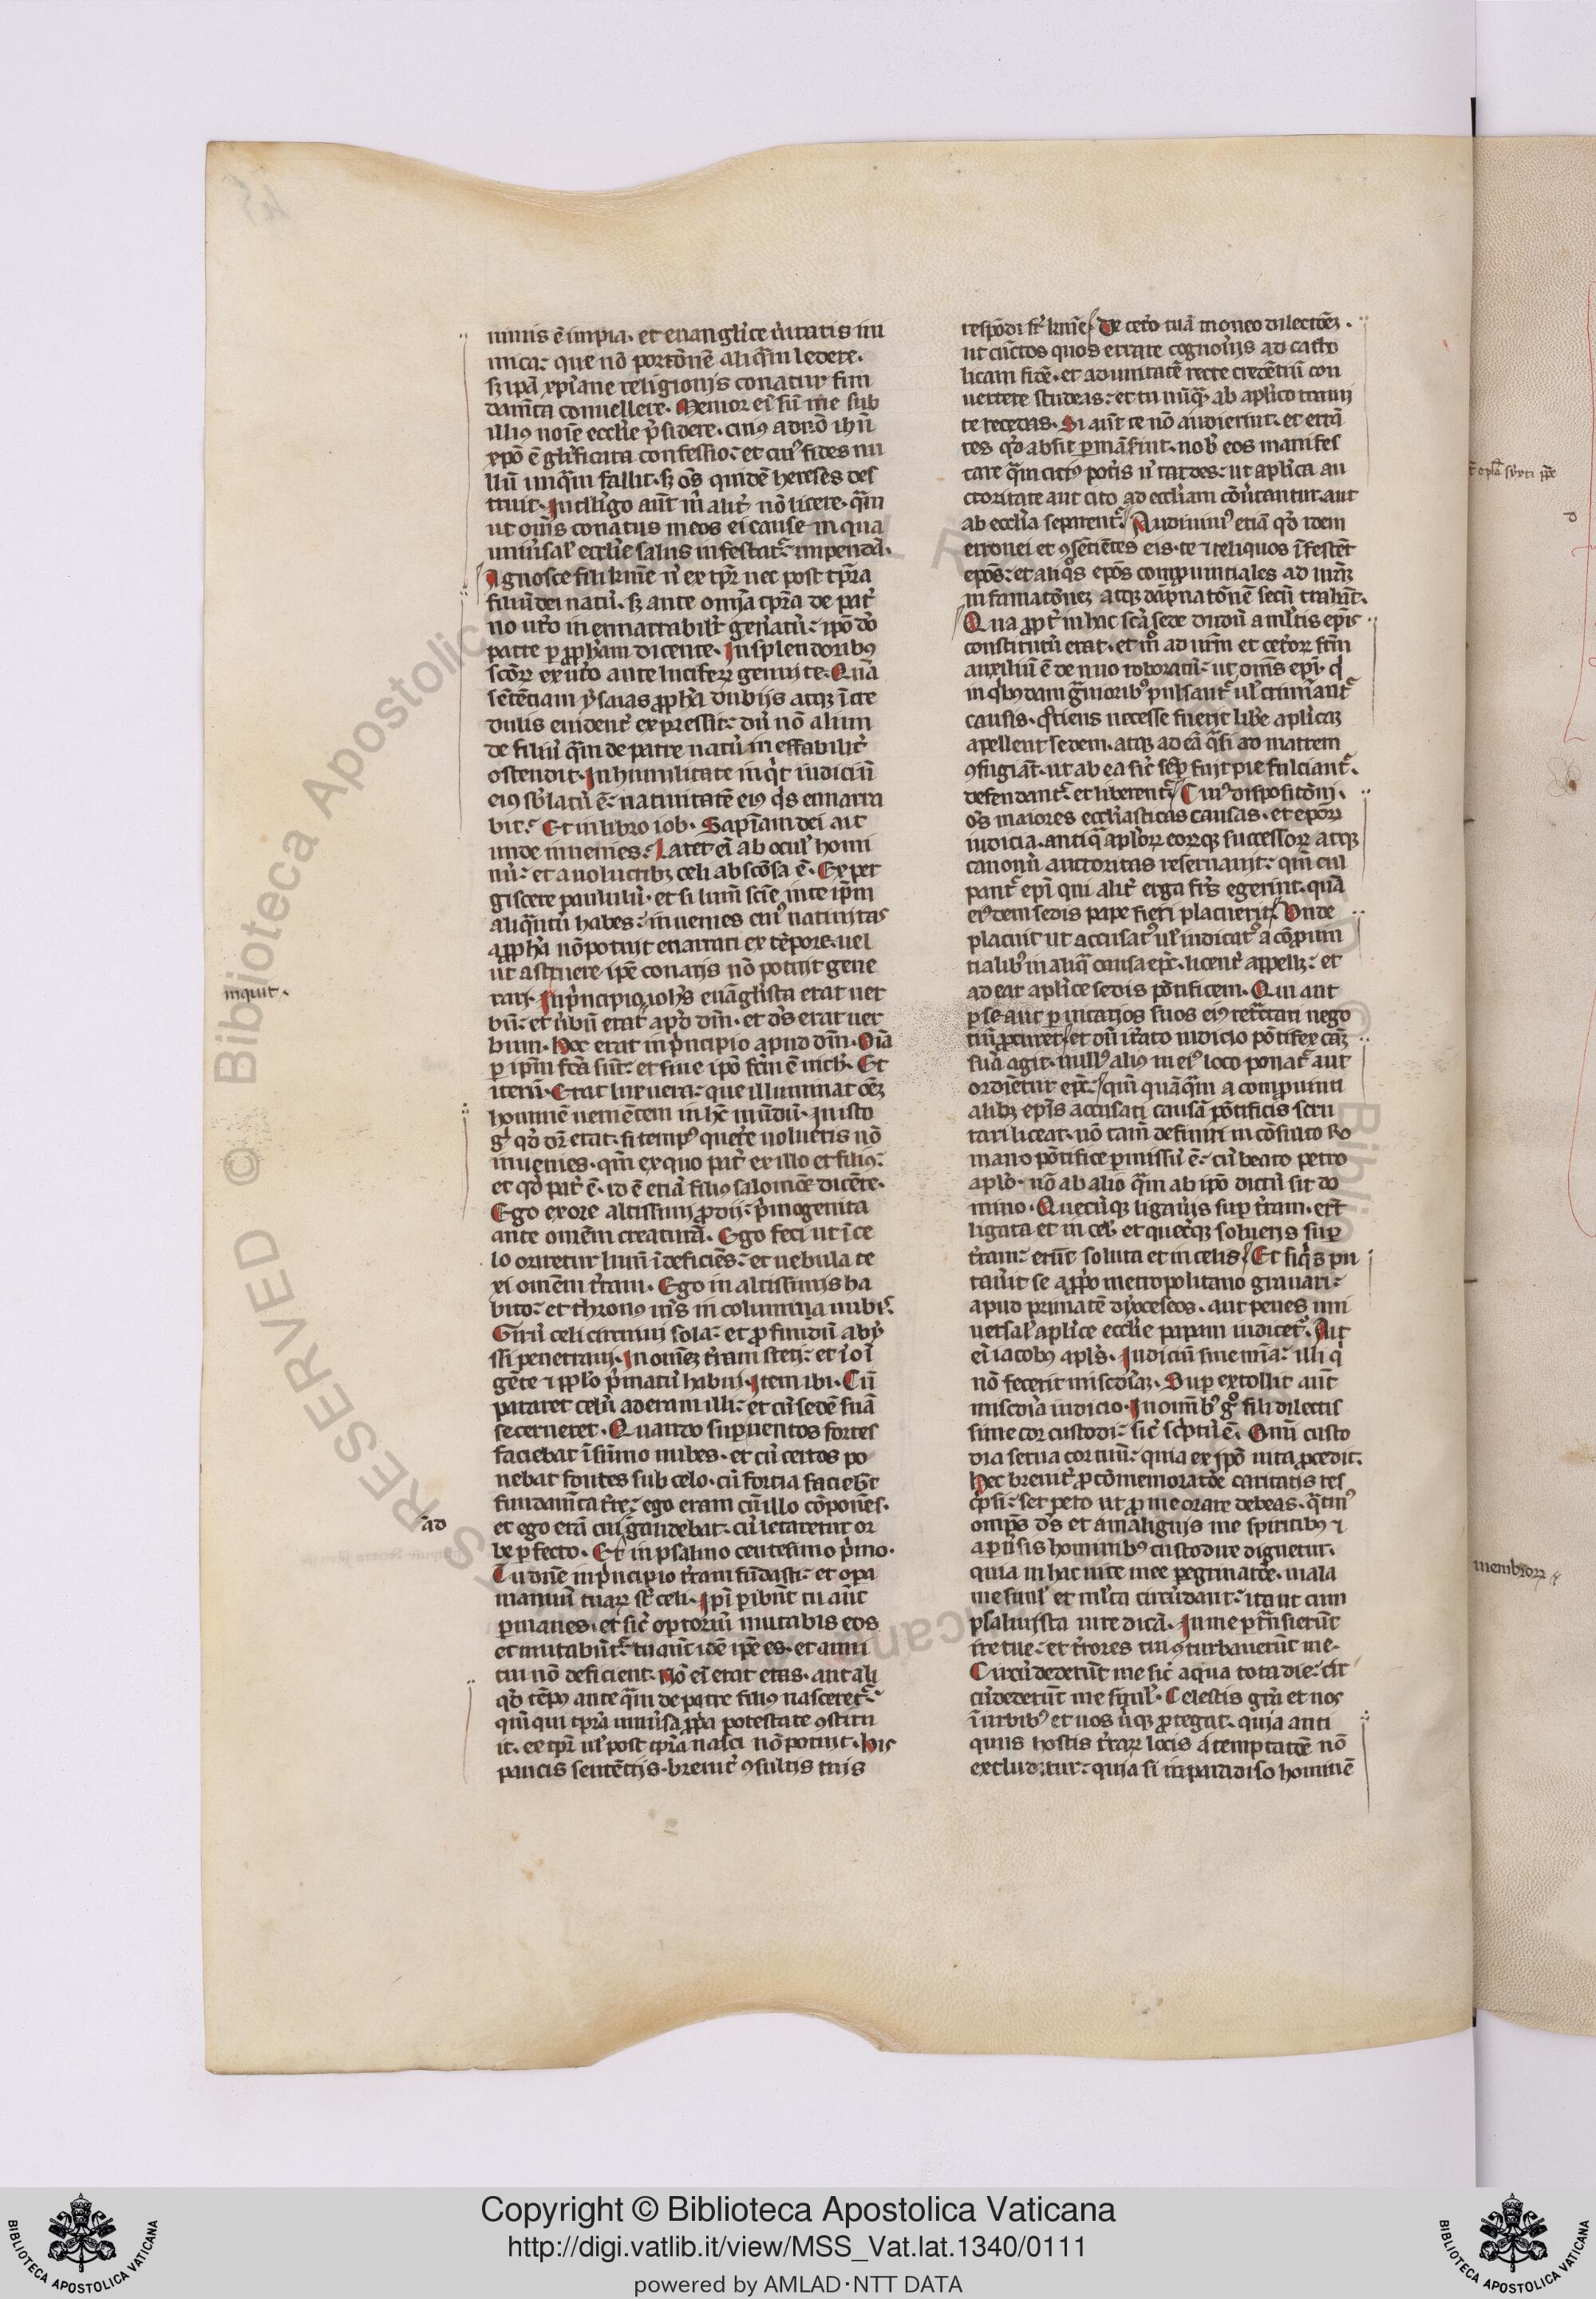 nimis ē impia. et euanglīce ūitatis ini
mica: que nō portōnē aliq̄m ledere.
sꝫ ipā xp̄iane religionis conatur fun
dam̄ta conuellere. Memor ei sū me sub
illius noīe ecclīe p̄sidere. cuiꝰ a dn̄o ih̄u
xp̄o ē glīficata confessio: et cuiꝰ fides nu
llū unq̄m fallit. sꝫ oēs quidē hereses des
truit. Intelligo aūt m̄ alit̄ nō licere. q̄m
ut om̄s conatus meos ei cause in qua
uniūsal̄ ecclīe salus infestat̄: impendā.
Agnosce fili kme n̄ ex tp̄r nec post tp̄ra
filiū dei natū. sꝫ ante omīa tp̄ra de pat̄
no ut̄o inenarrabilit̄ gen̄atū: ip̄o dō
patre ꝑ ꝓph̄am dicente. In splendoribꝰ
scōꝝ ex ut̄o ante lucifeꝝ genui te. Quā
sētētiam ysaias ꝓph̄a dubijs atqꝫ īcre
dulis euident̄ expressit: dū nō aliun
de filiū q̄m de patre natū ineffabilit̄
ostendit. In humilitate inq̄t iudiciū
eiꝰ sb̄latū ē: natiuitatē eiꝰ q̄s enarra
bit: Et in libro iob. Sapīam dei ait
unde inuenies: Latet ei ab ocul̄ homi
nū: et a uoluctibꝫ celi abscōsa ē. Exper
giscere paululū. et si lum̄ scīe in te ip̄m
aliq̄ntū habes: inuenies cuiꝰ natiuitas
a ꝓph̄a nō potuit enarrari ex tēpore. uel
ut astruere ipē conaris nō potuit gene
rari. In p̄ncipio ioh̄s euāglīsta erat uer
inquit.
bū: et ūbū erat apd̄ dm̄. et ds̄ erat uer
bum. Hoc erat in p̄ncipio apud dm̄. Oīa
ꝑ ip̄m fc̄a sūt: et sine ip̄o fc̄m ē nich̄. Et
iterū. Erat lux uera: que illuminat oēꝫ
hominē uenētem in hc̄ mūdū. In isto
g̊ qd̄ dr̄ erat. si tempꝰ quer̄e uolueris nō
inuenies. qm̄ ex quo pat̄ ex illo et filiꝰ:
et qd̄ pat̄ ē. id ē etiā filiꝰ salomōe dicēte.
Ego ex ore altissimi ꝓdij: p̄mogenita
ante omēm creaturā. Ego feci ut ī ce
lo oriretur lum̄ ī deficiēs: et nebula te
xi omēm t̄ram. Ego in altissimis ha
bito: et thronꝰ m̄s in columna nubis.
Girū celi circuiui sola: et ꝓfundū aby
ssi penetraui. In omēꝫ t̄ram steti: et ī oī
gēte ⁊ ppl̄o p̄matū habui. Item ibi. Cū
pararet celū aderam illi: et cū sedē suā
secerneret. Quando suꝑ uentos fortes
faciebat ī sūmo nubes. et cū certos po
nebat fontes sub celo. cū fortia facieb̄t
fundam̄ta t̄re: ego eram cū illo cōponēs.
et ego erā cui gaudebat. cū letaretur or
ād
be ꝑfecto. Et in psalmo centesimo p̄mo.
Tu dn̄e in p̄ncipio t̄ram fūdasti: et opa
manuū tuaꝝ st̄ celi. Ipī ꝑibūt tu aūt
ꝑmanes. et sic̄ optoriū mutabis eos
et mutabūt̄: tu aūt idē ipē es. et anni
tui nō deficient. Nō ei erat etas. aut ali
qd̄ tēpꝰ ante q̄m de patre filiꝰ nasceret̄:
quī qui tp̄ra uniūsa ꝓp̄a potestate ꝯstitu
it. ex tp̄r ul̄ post tp̄ra nasci nō potuit. His
paucis sentētijs. breuit̄ ꝯsultis tuis
respōdi fr̄ kme. De cet̄o tuā moneo dilectōeꝫ.
ut cūctos quos errare cognoūis ad catho
licam fidē. et ad unitatē recte credētiū con
uertere studeas: et tu nūq̄ ab aplīco trami
te recedas. Si aūt te nō audierint. et errā
tes qd̄ absit ꝑmāserint. nob̄ eos manifes
tare q̄m citiꝰ potis n̄ tardes: ut aplīca au
ctoritate aut cito ad ecclīam cōūtantur. aut
ab ecclīa separent̄. Audiuimꝰ etiā qd̄ idem
erronei et ꝯsētiētes eis. te ⁊ reliquos īfestēt
epōs: et aliq̄s epōs comꝓuintiales ad iniū̄
in famatōneꝫ atqꝫ dāpnatōnē secū trahūt.
Qua ꝓpt̄ in hac scā sede dudū a ml̄tis ep̄is
constitutū erat. et m̊ ad ur̄m et cet̄oꝝ fr̄m
auxiliū ē denuo roboratū: ut oms̄ epī. q̄
in q̄bꝰdam g̊uioribꝰ pulsant̄ ul̄ crimīant̄
causis. q̄tiens necesse fuerit lib̄e aplīcaꝫ
apellent sedem. atqꝫ ad eā q̄si ad matrem
ꝯfugiāt. ut ab ea sic̄ semp̄ fuit pie fulciant̄.
defendant̄: et liberent̄. Cuiꝰ dispositōni.
oēs maiores ecclīasticas causas. et epōꝝ
iudicia. antiq̄ aplōꝝ eorūqꝫ successoꝝ atqꝫ
canonū auctoritas reseruauit: qm̄ cul
pant̄ epī qui alit̄ erga fr̄s egerint. quā
eiꝰdem sedis pape fieri placuerit. Unde
placuit ut accusatꝰ ul̄ iudicatꝰ a cōꝓuin
tialibꝰ in aliq̄ causa epc̄. licent̄ appelleꝫ: et
adeat aplīce sedis pōtificem. Qui aut
ꝑ se. aut ꝑ uicarios suos eiꝰ ret̄ctari nego
tiū ꝓcuret. et dū it̄ato iudicio pōtifex cāꝫ
suā agit. nullꝰ alius in eiꝰ loco ponat̄ aut
ordīetur epc̄. quī quāq̄m a comꝓuinti
alibꝫ ep̄is accusati causā pōtificis scru
tari liceat. nō tam̄ definiri inconsulto Ro
mano pōtifice ꝑmissū ē: cū beato petro
aplō. nō ab alio q̄m ab ip̄o dictū sit do
mino. Quecūqꝫ ligaūis suꝑ t̄ram. er̄t
ligata et in cel̄. et quecūqꝫ solueris suꝑ
t̄ram: erūt soluta et in celis. Et siq̄s pu
taūit se a ꝓp̄o metropolitano grauari:
apud primatē dyoceseos. aut penes uni
uersal̄ aplīce ecclīe papam iudicet̄. Ait
ei iacobꝰ apl̄s. Iudiciū sine mīa: illi q̄
nō fecerit miscdīaꝫ. Suꝑ extollit aūt
miscdīa iudicio. In oīmbꝰ g̊ fili dilectis
sime cor custodi: sic̄ scptū ē. Omī custo
dia serua cor tuū: quia ex ip̄o uita ꝓcedit.
Hec breuit̄ ꝓ cōmemoratōe caritatis res
cpsi: set peto ut ꝓ me orare debeas. q̄tinꝰ
omps̄ ds̄ et a malignis me spiritibꝰ ⁊
a ꝑūsis hominibꝰ custodire dignetur.
quia in hac uite mee peg̊natōe. mala
me simul̄ et ml̄ta circūdant: ita ut cum
psalmista iure dicā. In me ꝑt̄nsierūt
ire tue: et t̄rores tui ꝯturbauerūt me.
Circūdederūt me sic̄ aqua tota die: cir
cūdederūt me simul̄. Celestis gr̄a et nos
ī urbibꝰ et uos ūqꝫ ꝓtegat. quia anti
quus hostis t̄raꝝ locis a temptatōe nō
excluditur: quia si in paradiso hominē
membroꝝ
Copyright © Biblioteca Apostolica Vaticana
http://digi.vatlib.it/view/MSS_Vat.lat.1340/0111
powered by AMLAD·NTT DATA
BIBLIOTECA APOSTOLICA VATICANA
BIBLIOTECA APOSTOLICA VATICANA